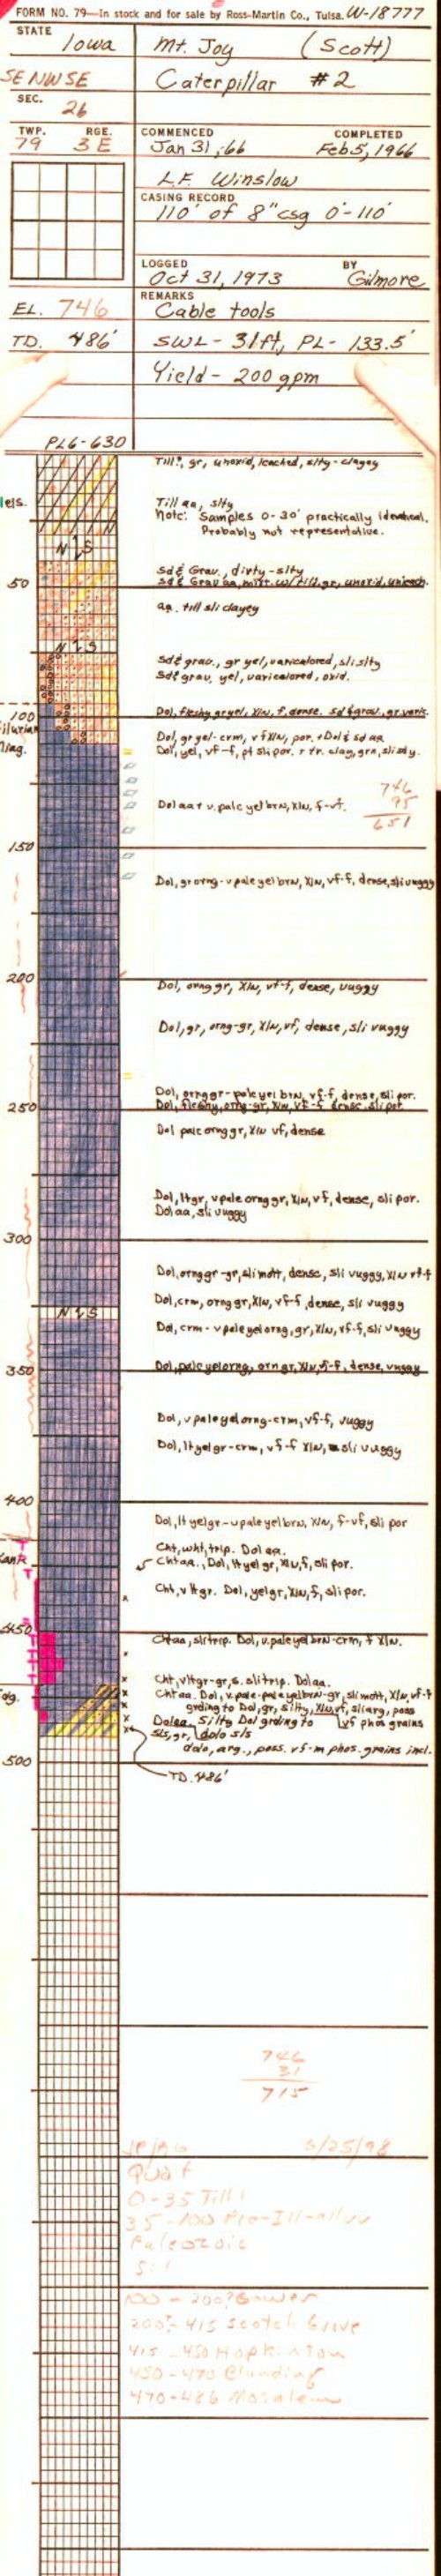 FORM NO. 79—In stock and for sale by Ross-Martin Co., Tulsa. W-18777
STATE
Iowa
Mt. Joy (Scott)
SE NW SE
Caterpillar #2
SEC.
26
TWP. RGE.
79 3 E
COMMENCED COMPLETED
Jan 31, 66 Feb 5, 1966
L.F. Winslow
CASING RECORD
110' of 8" csg 0'-110'
LOGGED BY
Oct 31, 1973 Gilmore
REMARKS
EL. 746
Cable tools
TD. 486'
SWL - 31ft, PL - 133.5'
Yield - 200 gpm
PLG-630
Till, gr, unoxid, leached, slty-clayey
Till aa, slty
Note: Samples 0-30' practically identical.
Probably not representative.
NIS
Sd & Grav., dirty-slty
50
Sd & Grav aa, mixt. w/ till, gr, unoxid, unleach.
aa. till sli clayey
NIS
Sd & grav., gr yel, varicolored, sli slty
Sd & grav, yel, varicolored, oxid.
100
Dol, fleshy gr yel, Xln, f, dense. sd & grav., gr varic.
Dol, gr yel-crm, vf Xln, por. + Dol & sd aa
Dol, yel, vf-f, pt sli por. + tr. clay, grn, sli sdy.
746
95
651
Dol aa + v. pale yel brn, Xln, f-vf.
150
Dol, gr orng-v pale yel brn, Xln, vf-f, dense, sli vuggy
200
Dol, orng gr, Xln, vf-f, dense, vuggy
Dol, gr, orng-gr, Xln, vf, dense, sli vuggy
Dol, orng gr-pale yel brn, vf-f, dense, sli por.
250
Dol, fleshy, orng-gr, Xln, vf-f dense, sli por.
Dol pale orng gr, Xln vf, dense
Dol, lt gr, v pale orng gr, Xln, vf, dense, sli por.
Dol aa, sli vuggy
300
Dol, orng gr-gr, sli mott, dense, sli vuggy, Xln vf-f
Dol, crm, orng gr, Xln, vf-f, dense, sli vuggy
NIS
Dol, crm - v pale yel orng, gr, Xln, vf-f, sli vuggy
350
Dol, pale yel orng, orn gr, Xln, vf-f, dense, vuggy
Dol, v pale yel orng-crm, vf-f, vuggy
Dol, lt yel gr-crm, vf-f Xln, sli vuggy
400
Dol, lt yel gr-v pale yel brn, Xln, f-vf, sli por
Cht, wht, trip. Dol aa.
Cht aa., Dol, lt yel gr, Xln, f, sli por.
Cht, v lt gr. Dol, yel gr, Xln, f, sli por.
450
Cht aa, sli trip. Dol, v. pale yel brn-crm, f Xln.
Cht, v lt gr-gr, s. sli trip. Dol aa.
Cht aa. Dol, v. pale-pale yel brn-gr, sli mott, Xln, vf-f
grding to Dol, gr, silty, Xln, vf, sli arg, poss
vf phos grains
Dol aa, Silty Dol grding to
Sls, gr, dolo sls
dolo, arg., poss. vf-m phos. grains incl.
500
TD. 486'
746
31
715
5/25/98
Quat
0-35 Till
35-100 Pre-Ill-alluv
Paleozoic
Sil
100 - 200? Gower
200? - 415 Scotch Grove
415 - 450 Hopkinton
450 - 470 Blanding
470-486 Mosalem